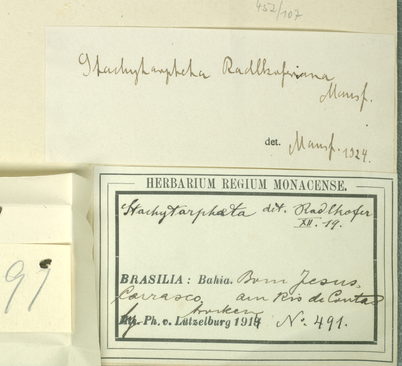 452/107
Stachytarpheta Radlkoferiana
Mansf.
det. Mansf. 1924.
HERBARIUM REGIUM MONACENSE.
Stachytarphaeta det. Radlkofer
XII. 19.
BRASILIA: Bahia. Bom Jesus,
Carrasco, am Rio de Contas
trocken
Ph. v. Lützelburg 1914 No. 491.
91